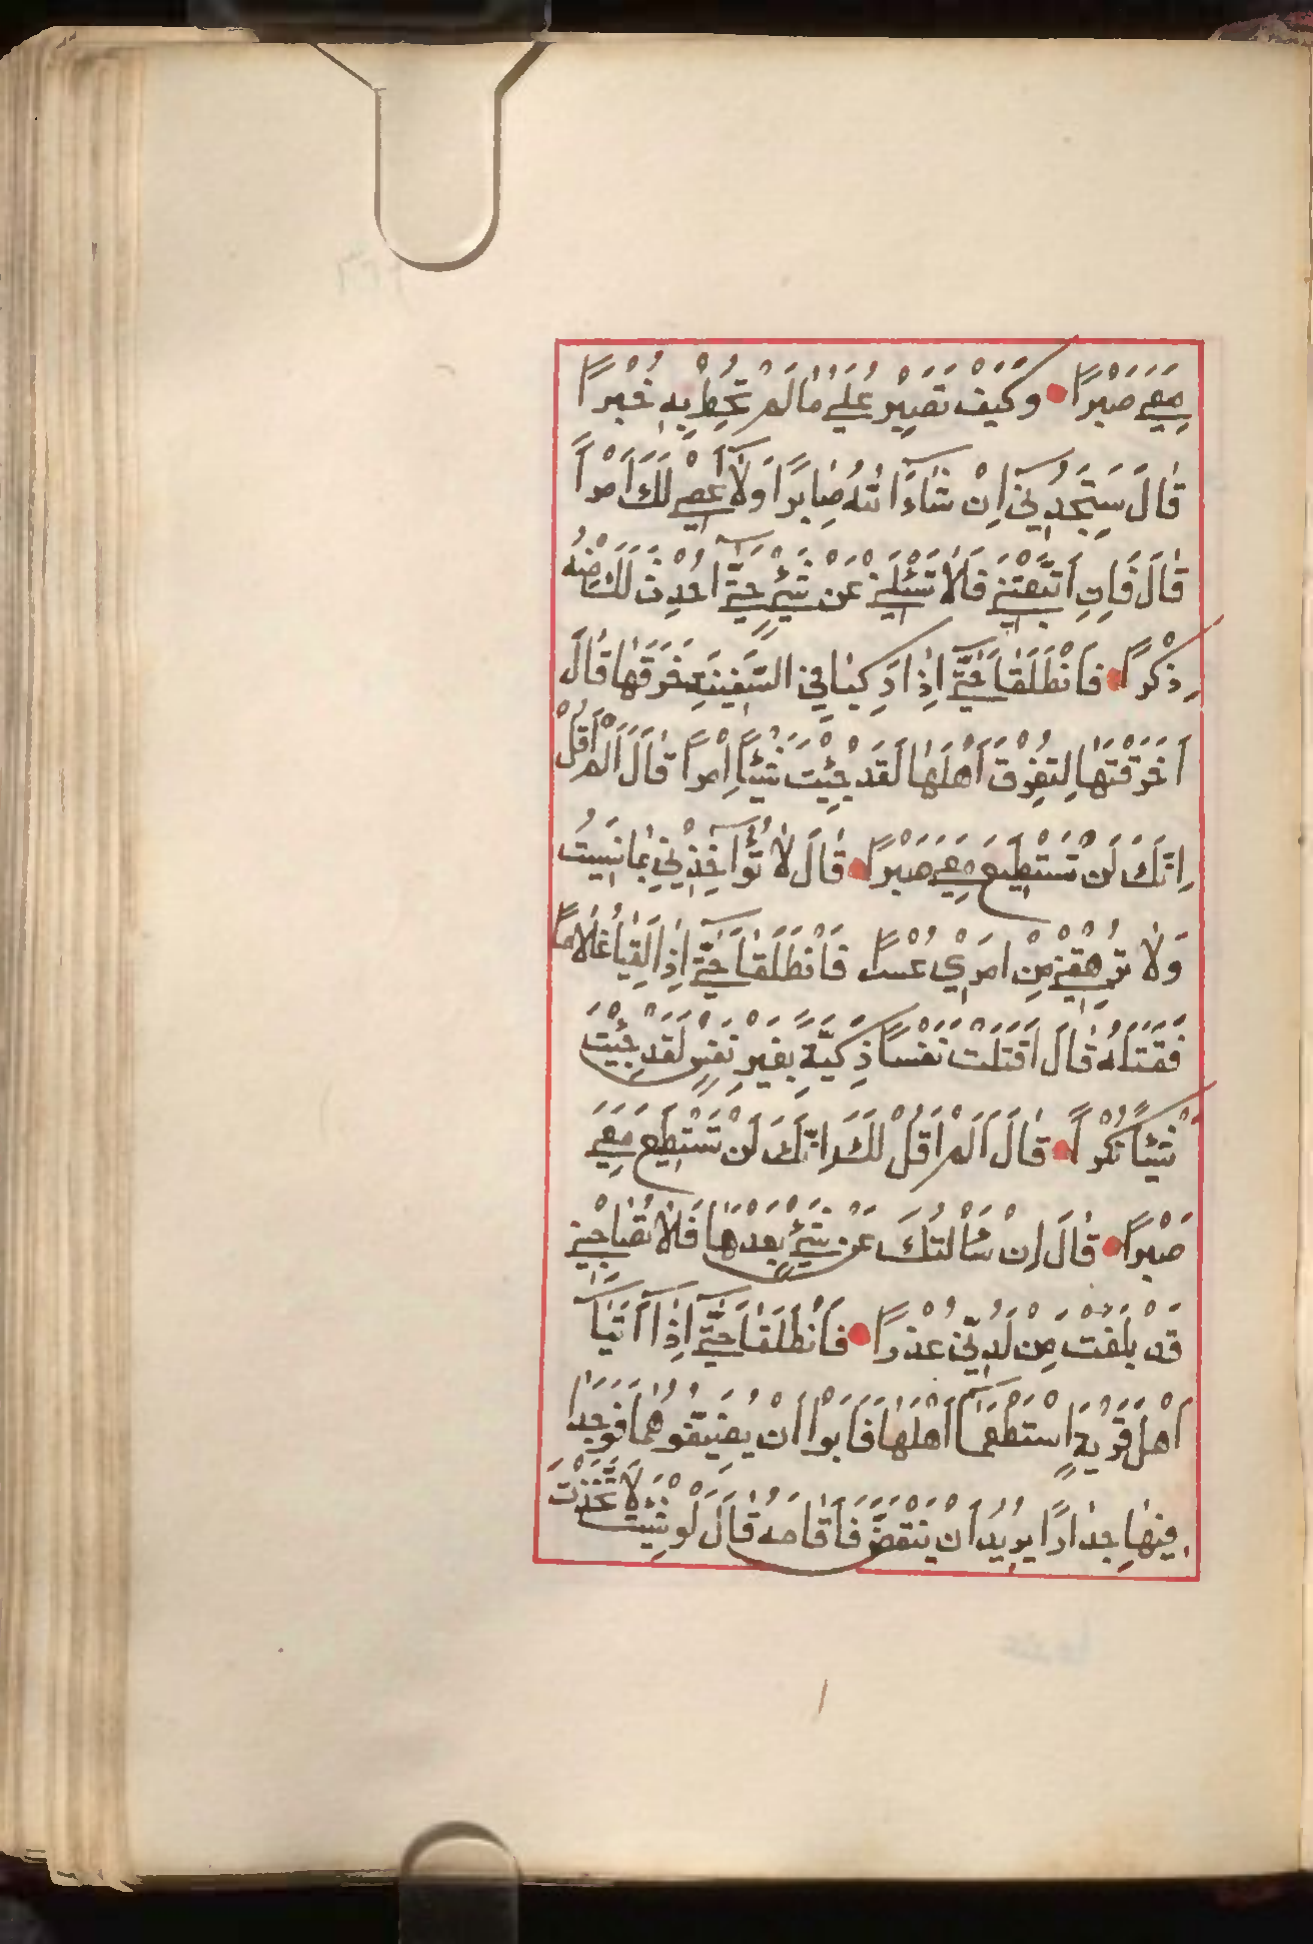 مَعِيَ صَبْراً وَكَيْفَ تَصْبِرُ عَلَىٰ مَا لَمْ تُحِطْ بِهِ خُبْراً
قَالَ سَتَجِدُنِي اِنْ شَاءَ اللّٰهُ صَابِراً وَلَا أَعْصِي لَكَ اَمْراً
قَالَ فَاِنِ اتَّبَعْتَنِي فَلَا تَسْئَلْنِي عَنْ شَيْءٍ حَتّٰى اُحْدِثَ لَكَ مِنْهُ
ذِكْراً فَانْطَلَقَا حَتّٰى اِذَا رَكِبَا فِي السَّفِينَةِ خَرَقَهَا قَالَ
اَخَرَقْتَهَا لِتُغْرِقَ اَهْلَهَا لَقَدْ جِئْتَ شَيْئاً اِمْراً قَالَ اَلَمْ اَقُلْ
اِنَّكَ لَنْ تَسْتَطِيعَ مَعِيَ صَبْراً قَالَ لَا تُؤَاخِذْنِي بِمَا نَسِيتُ
وَلَا تُرْهِقْنِي مِنْ اَمْرِي عُسْراً فَانْطَلَقَا حَتّٰى اِذَا لَقِيَا غُلَاماً
فَقَتَلَهُ قَالَ اَقَتَلْتَ نَفْساً زَكِيَّةً بِغَيْرِ نَفْسٍ لَقَدْ جِئْتَ
شَيْئاً نُكْراً قَالَ اَلَمْ اَقُلْ لَكَ اِنَّكَ لَنْ تَسْتَطِيعَ مَعِيَ
صَبْراً قَالَ اِنْ سَأَلْتُكَ عَنْ شَيْءٍ بَعْدَهَا فَلَا تُصَاحِبْنِي
قَدْ بَلَغْتَ مِنْ لَدُنِّي عُذْراً فَانْطَلَقَا حَتّٰى اِذَا اَتَيَا
اَهْلَ قَرْيَةٍ اسْتَطْعَمَا اَهْلَهَا فَاَبَوْا اَنْ يُضَيِّفُوهُمَا فَوَجَدَا
فِيهَا جِدَاراً يُرِيدُ اَنْ يَنْقَضَّ فَاَقَامَهُ قَالَ لَوْ شِئْتَ لَاتَّخَذْتَ